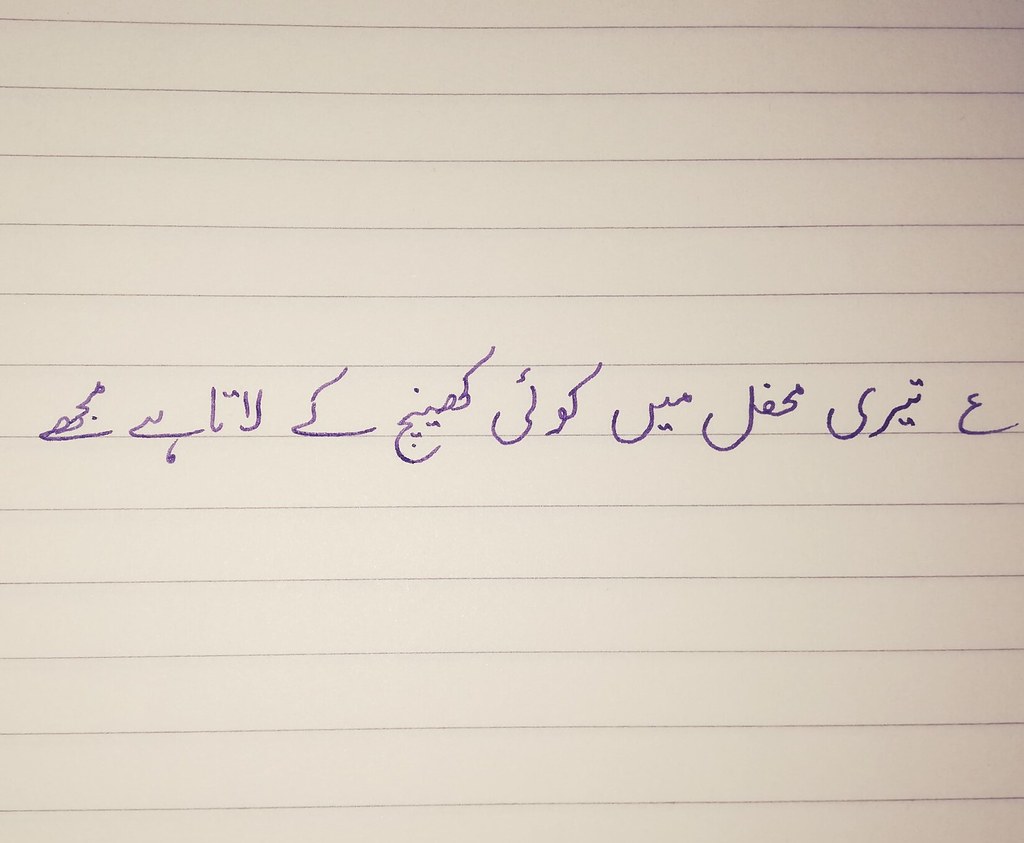 ع تیری محفل میں کوئی کھینچ کے لاتا ہے مجھے